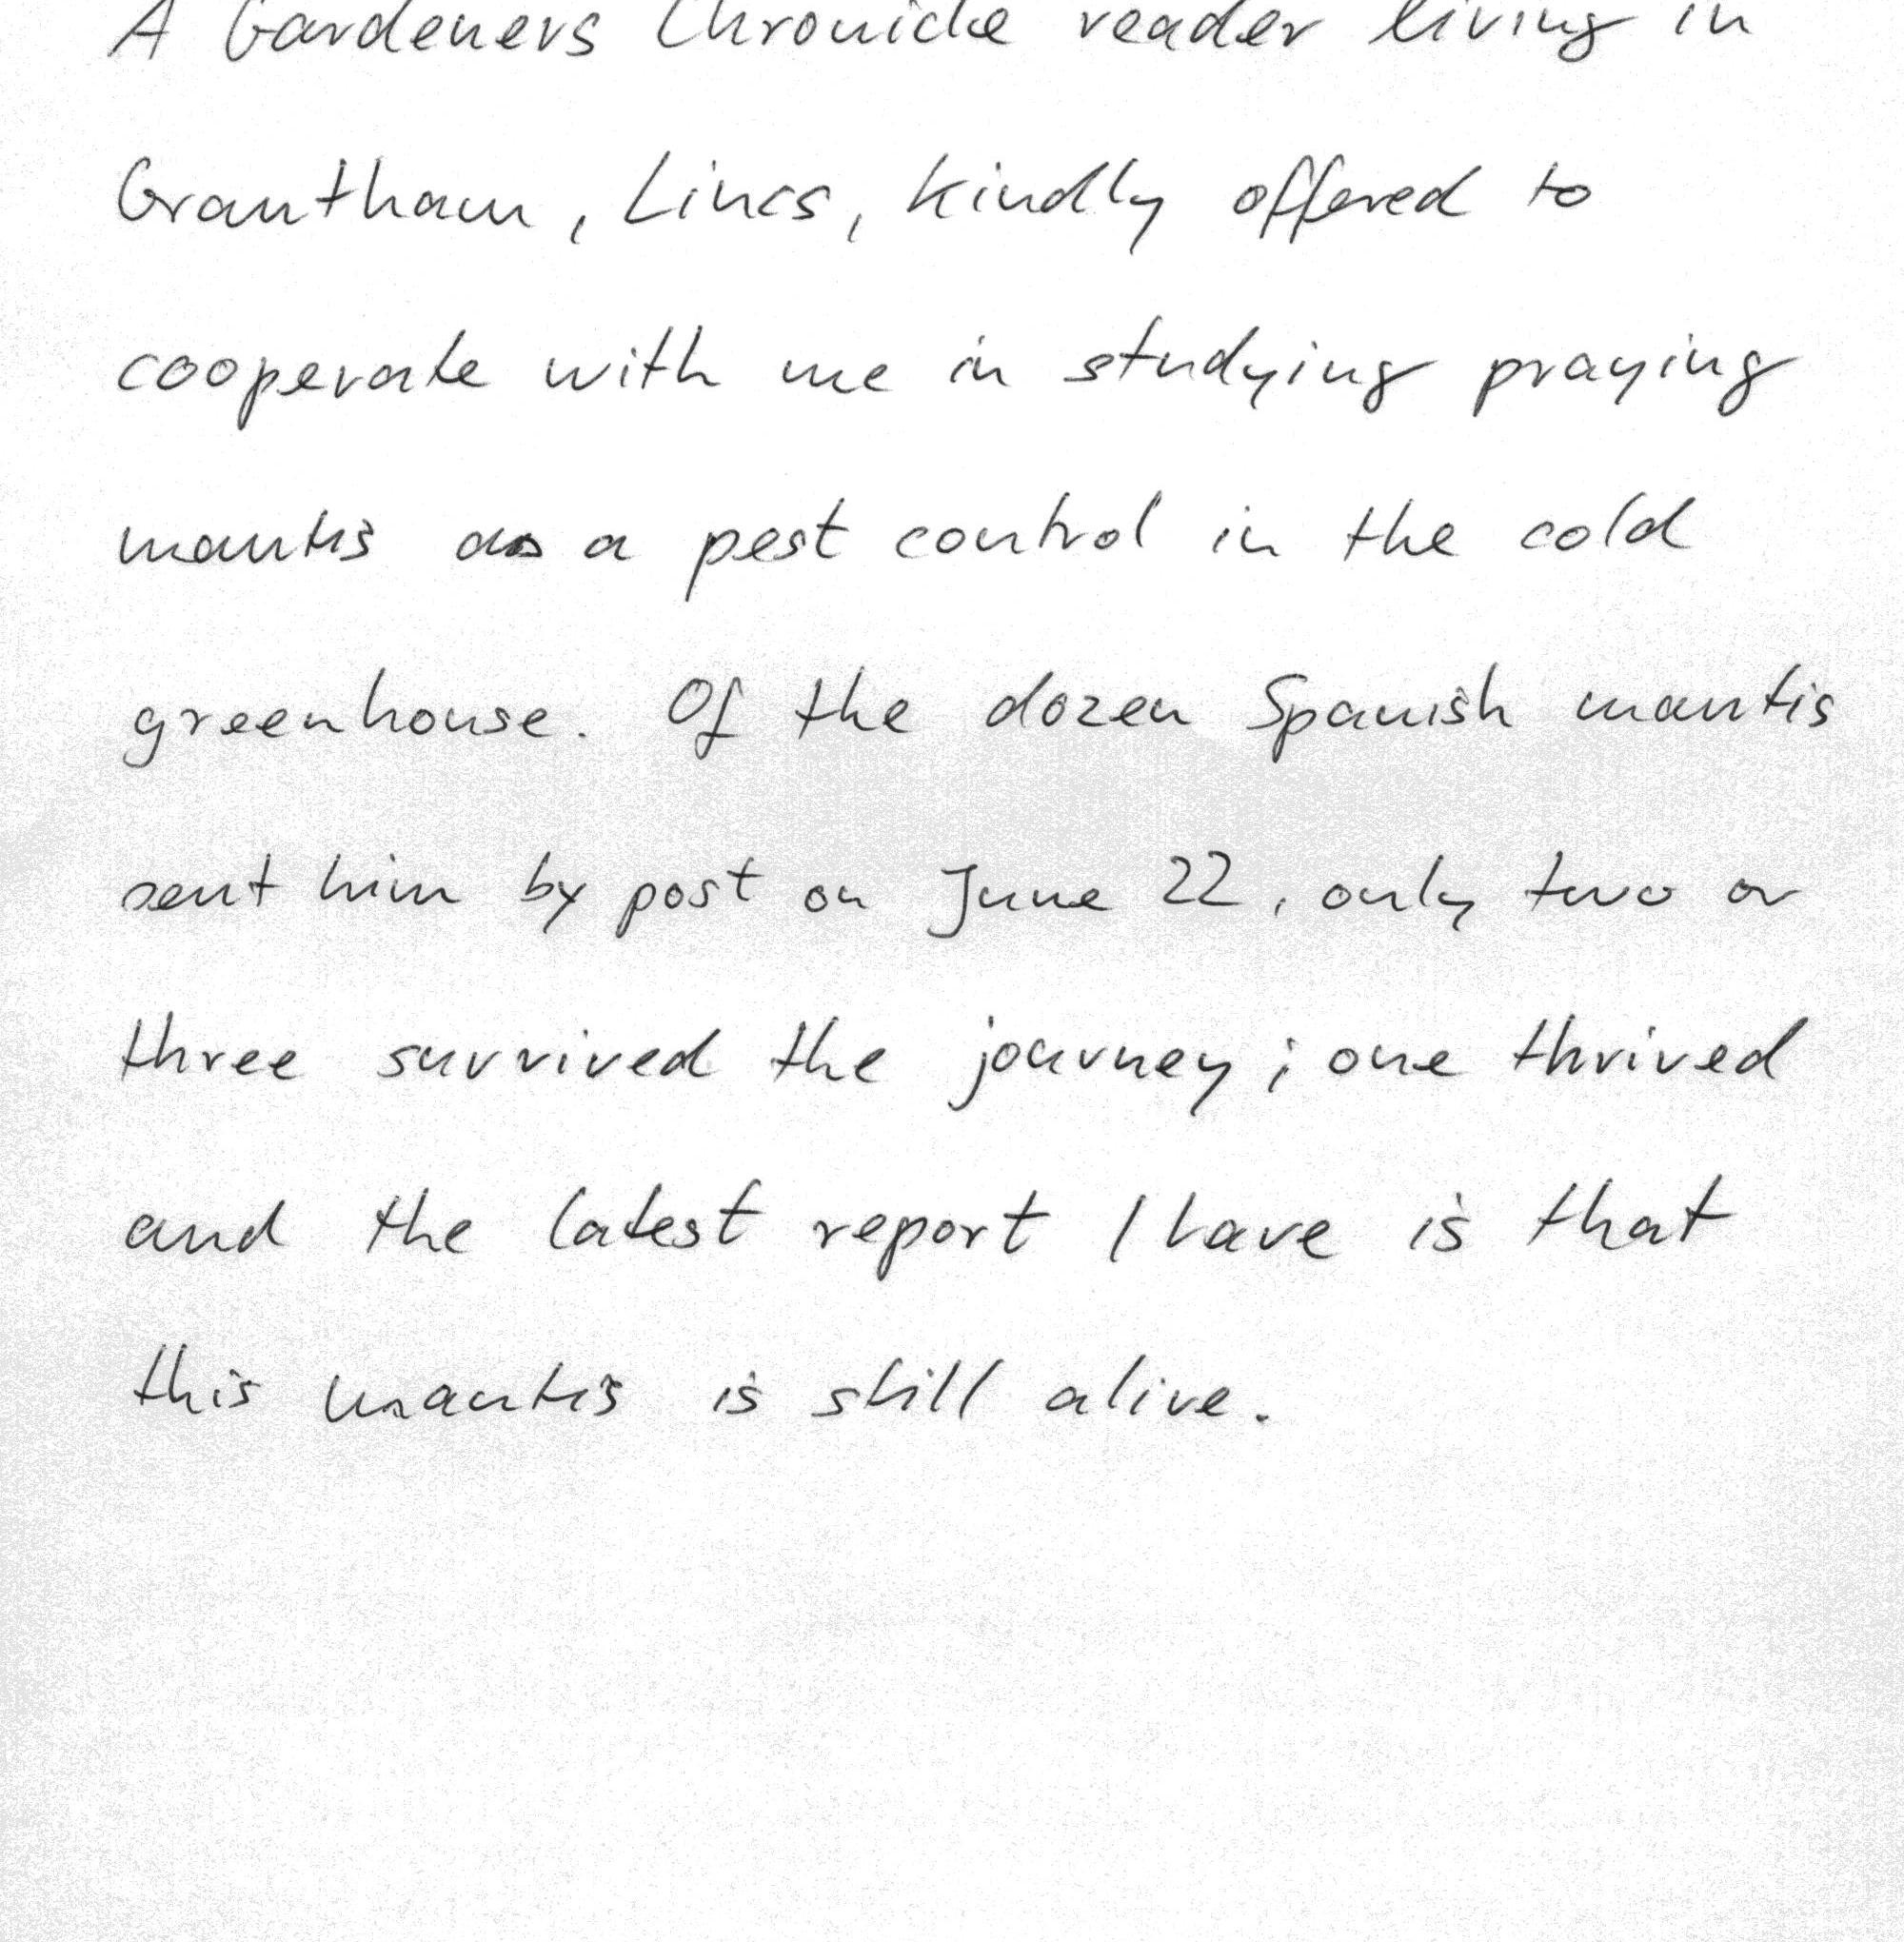 A Gardeners Chronicle reader living in
Grantham, Lincs, kindly offered to
cooperate with me in studying praying
mantis as a pest control in the cold
greenhouse. Of the dozen Spanish mantis
sent him by post on June 22, only two or
three survived the journey; one thrived
and the latest report I have is that
this mantis is still alive.